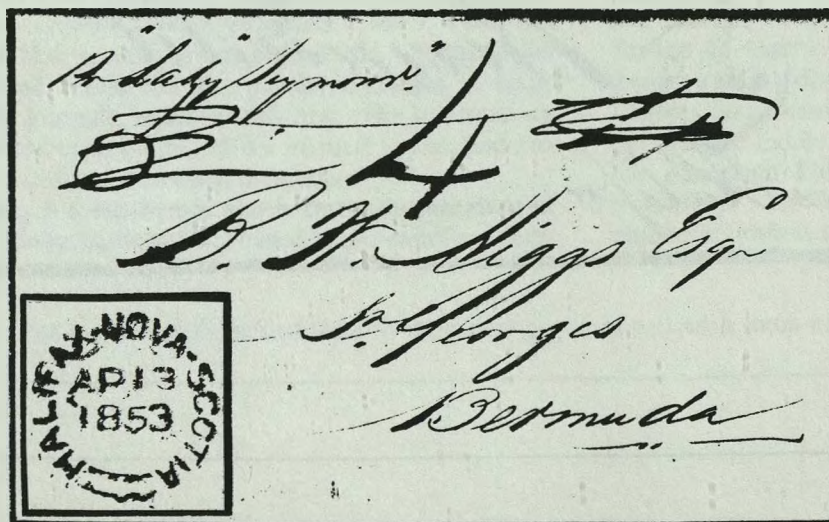 Pr "Lady Seymour"
4
B W Higgs Esqr
St Georges
Bermuda
HALIFAX·NOVA-SCOTIA
AP 13
1853